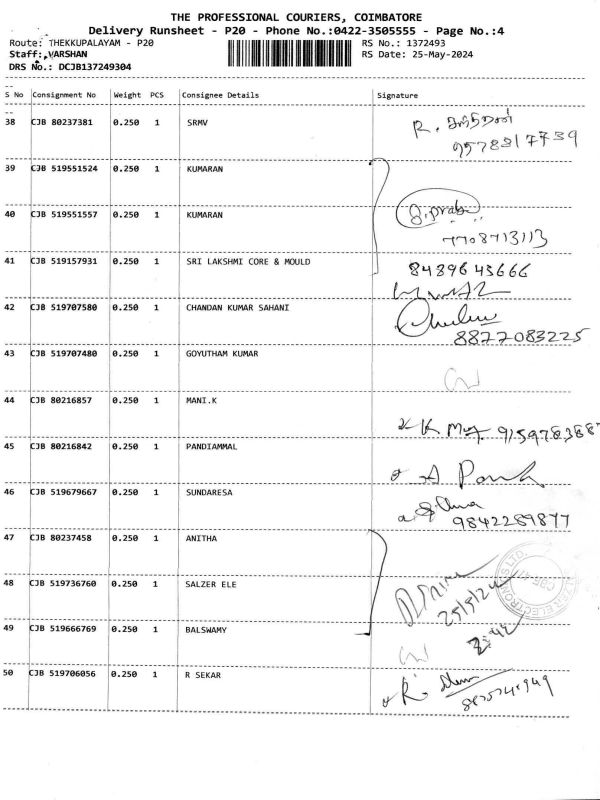 THE PROFESSIONAL COURIERS, COIMBATORE
Delivery Runsheet - P20 - Phone No.:0422-3505555 - Page No.:4
Route: THEKKUPALAYAM - P20 RS No.: 1372493
Staff: VARSHAN RS Date: 25-May-2024
DRS No.: DCJB137249304
S No Consignment No Weight PCS Consignee Details Signature
38 CJB 80237381 0.250 1 SRMV R.
39 CJB 519551524 0.250 1 KUMARAN
40 CJB 519551557 0.250 1 KUMARAN
7708713113
41 CJB 519157931 0.250 1 SRI LAKSHMI CORE & MOULD 84396 43666
42 CJB 519707580 0.250 1 CHANDAN KUMAR SAHANI
8877083225
43 CJB 519707480 0.250 1 GOYUTHAM KUMAR
44 CJB 80216857 0.250 1 MANI.K
45 CJB 80216842 0.250 1 PANDIAMMAL
46 CJB 519679667 0.250 1 SUNDARESA
9842289877
47 CJB 80237458 0.250 1 ANITHA
48 CJB 519736760 0.250 1 SALZER ELE
25/5/24
49 CJB 519666769 0.250 1 BALSWAMY
50 CJB 519706056 0.250 1 R SEKAR R.